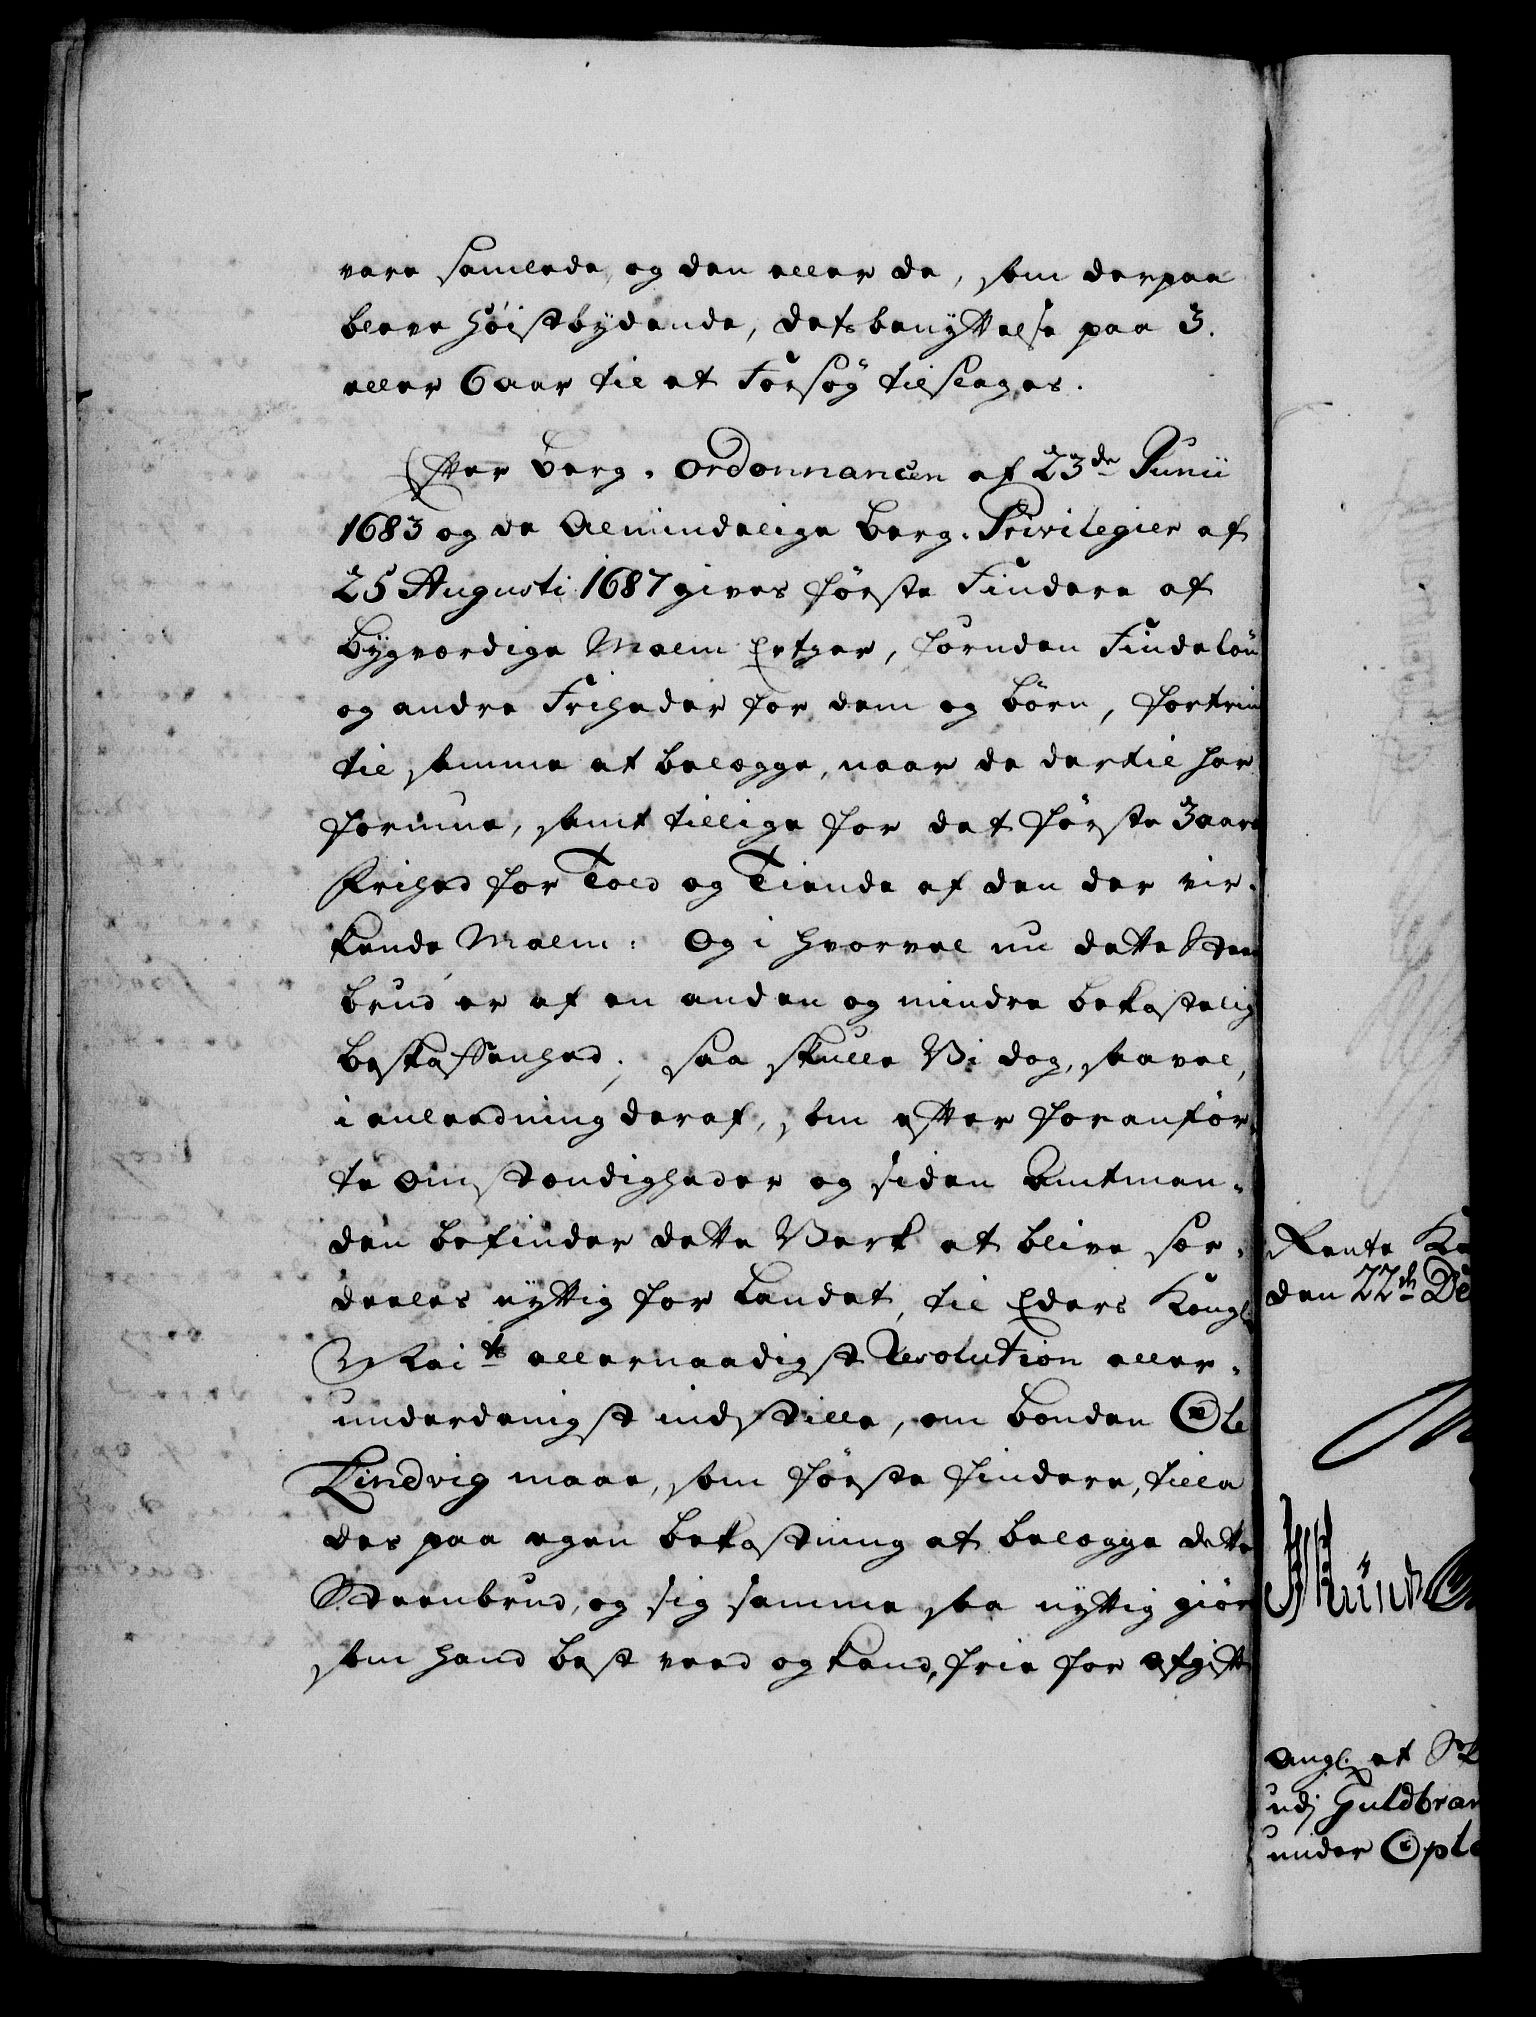 vare samlede, og den eller de, som derpaa
bleve høistbydende, dets benyttelse paa 3.
eller 6 aar til et Forsøg tilslages.
Efter Berg-Ordonnancen af 23de Junii
1683 og de Almindelige Berg-Privilegier af
25 Augusti 1687 gives første Findere af
Bygværdige Malm Ertzer, foruden Findeløn
og andre Friheder for dem og børn, fortrin
til samme at belægge, naar de dertil har
formue, samt tillige for det første 3 aars
Frihed for Told og Tiende af den der vir-
kende Malm: Og i hvorvel nu dette Steen
brud er af en anden og mindre bekostelig
beskaffenhed; saa skulle Vi dog, saavel,
i anleedning deraf, som efter foranfør-
te omstændigheder og siden Amtman-
den befinder dette Værk at blive sær-
deeles nyttig for Landet, til Eders Kongl.
Mai.ts allernaadigst Resolution aller-
underdanigst indstille, om bonden Ole
Lindvig maae, som første findere, tilla
des paa egen bekostning at belægge dette
Steenbrud, og sig samme saa nyttig giøre
som hand best veed og kand, frie for afgift
Rente Ka
den 22de De
ang: at
udj Guldbran
under Opl